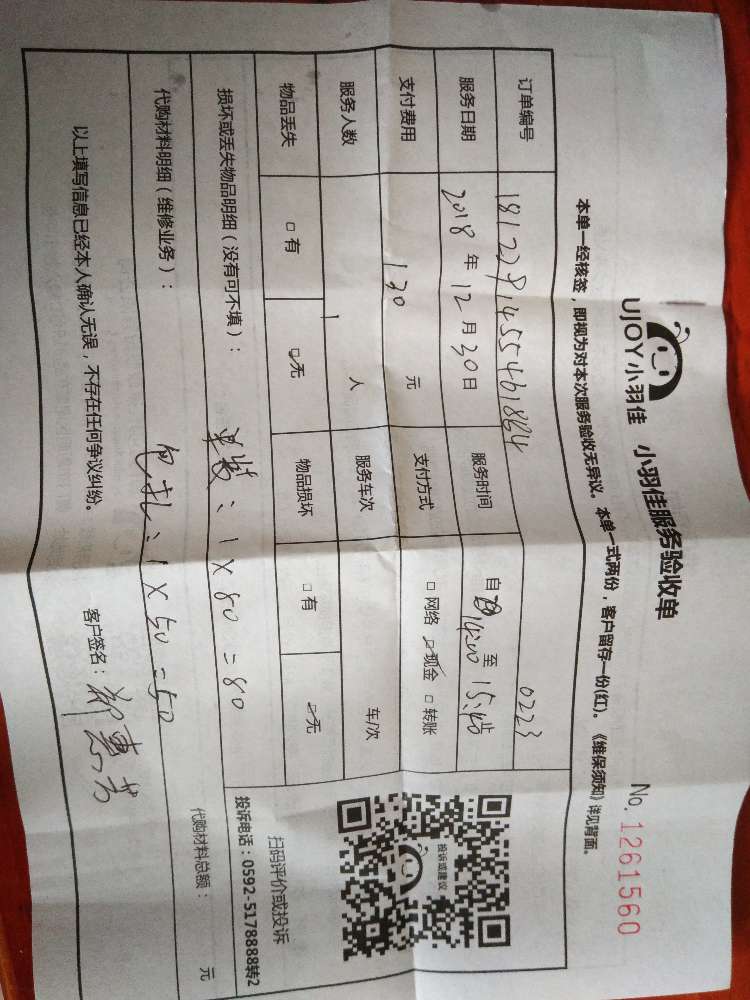 UJOY小羽佳 小羽佳服务验收单
No. 1261560
本单一经核签，即视为对本次服务验收无异议。本单一式两份，客户留存一份(红)。《维保须知》详见背面。
订单编号 0223
服务日期 2018年12月30日 服务时间 自 14:00 至
支付费用 130 元 支付方式 □网络 ☑现金 □转账
服务人数 1 人 服务车次 车/次
物品丢失 □有 ☑无 物品损坏 □有 ☑无
投诉或建议
扫码评价或投诉
投诉电话：0592-5178888转2
损坏或丢失物品明细（没有可不填）： ：1×80=80
代购材料明细（维修业务）： ：1×50=50
代购材料总额： 元
以上填写信息已经本人确认无误，不存在任何争议纠纷。 客户签名：